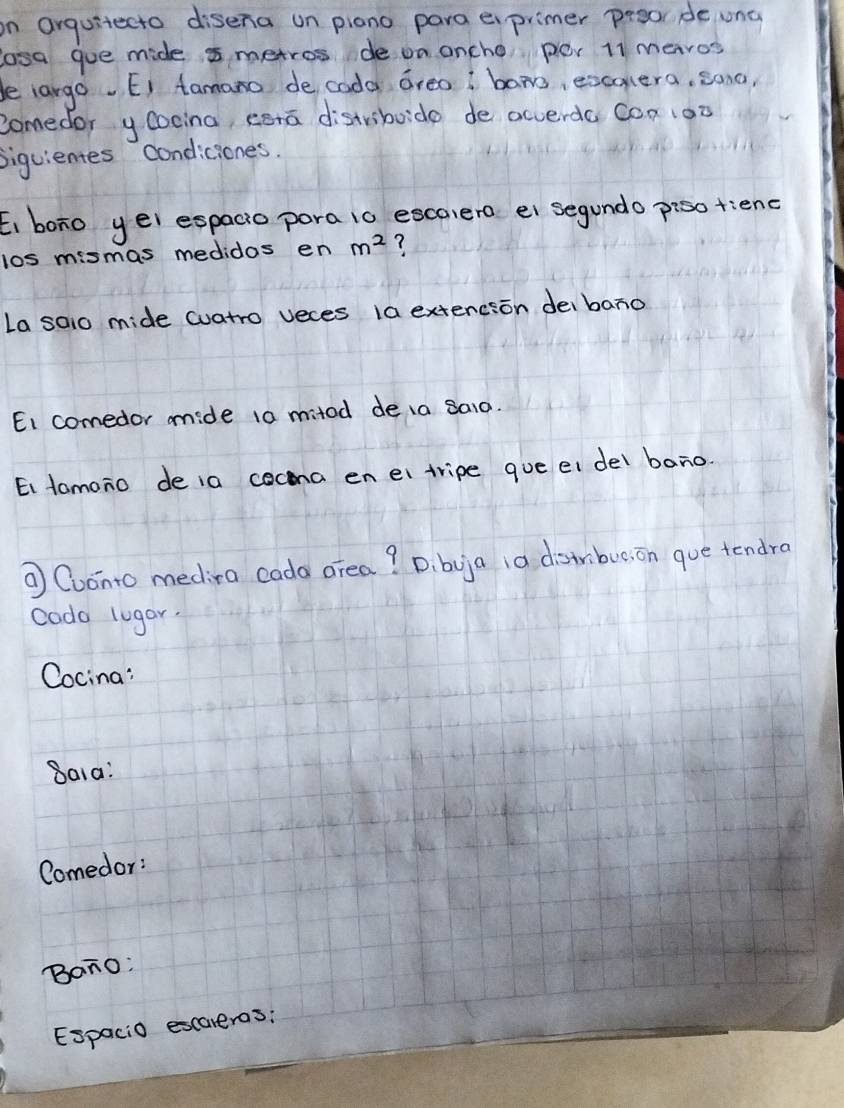 on arquitecto diseña un plano para el primer piso de una
Casa que mide 5 metros de un ancho por 11 metros
de largo. El tamaño de cada área: baño, escalera, sala,
Comedor y Cocina, está distribuido de acuerdo Con las
Siguientes Condiciones.
El baño y el espacio para la escalera el segundo piso tiene
los mismas medidas en m²?
La sala mide cuatro veces la extención del baño
El comedor mide la mitad de la sala.
El tamaño de la cocina en el tripe que el del baño.
a) Cuánto medira cada area? Dibuja la distribución que tendra
Cada lugar.
Cocina:
Sala:
Comedor:
Baño:
Espacio escaleras: